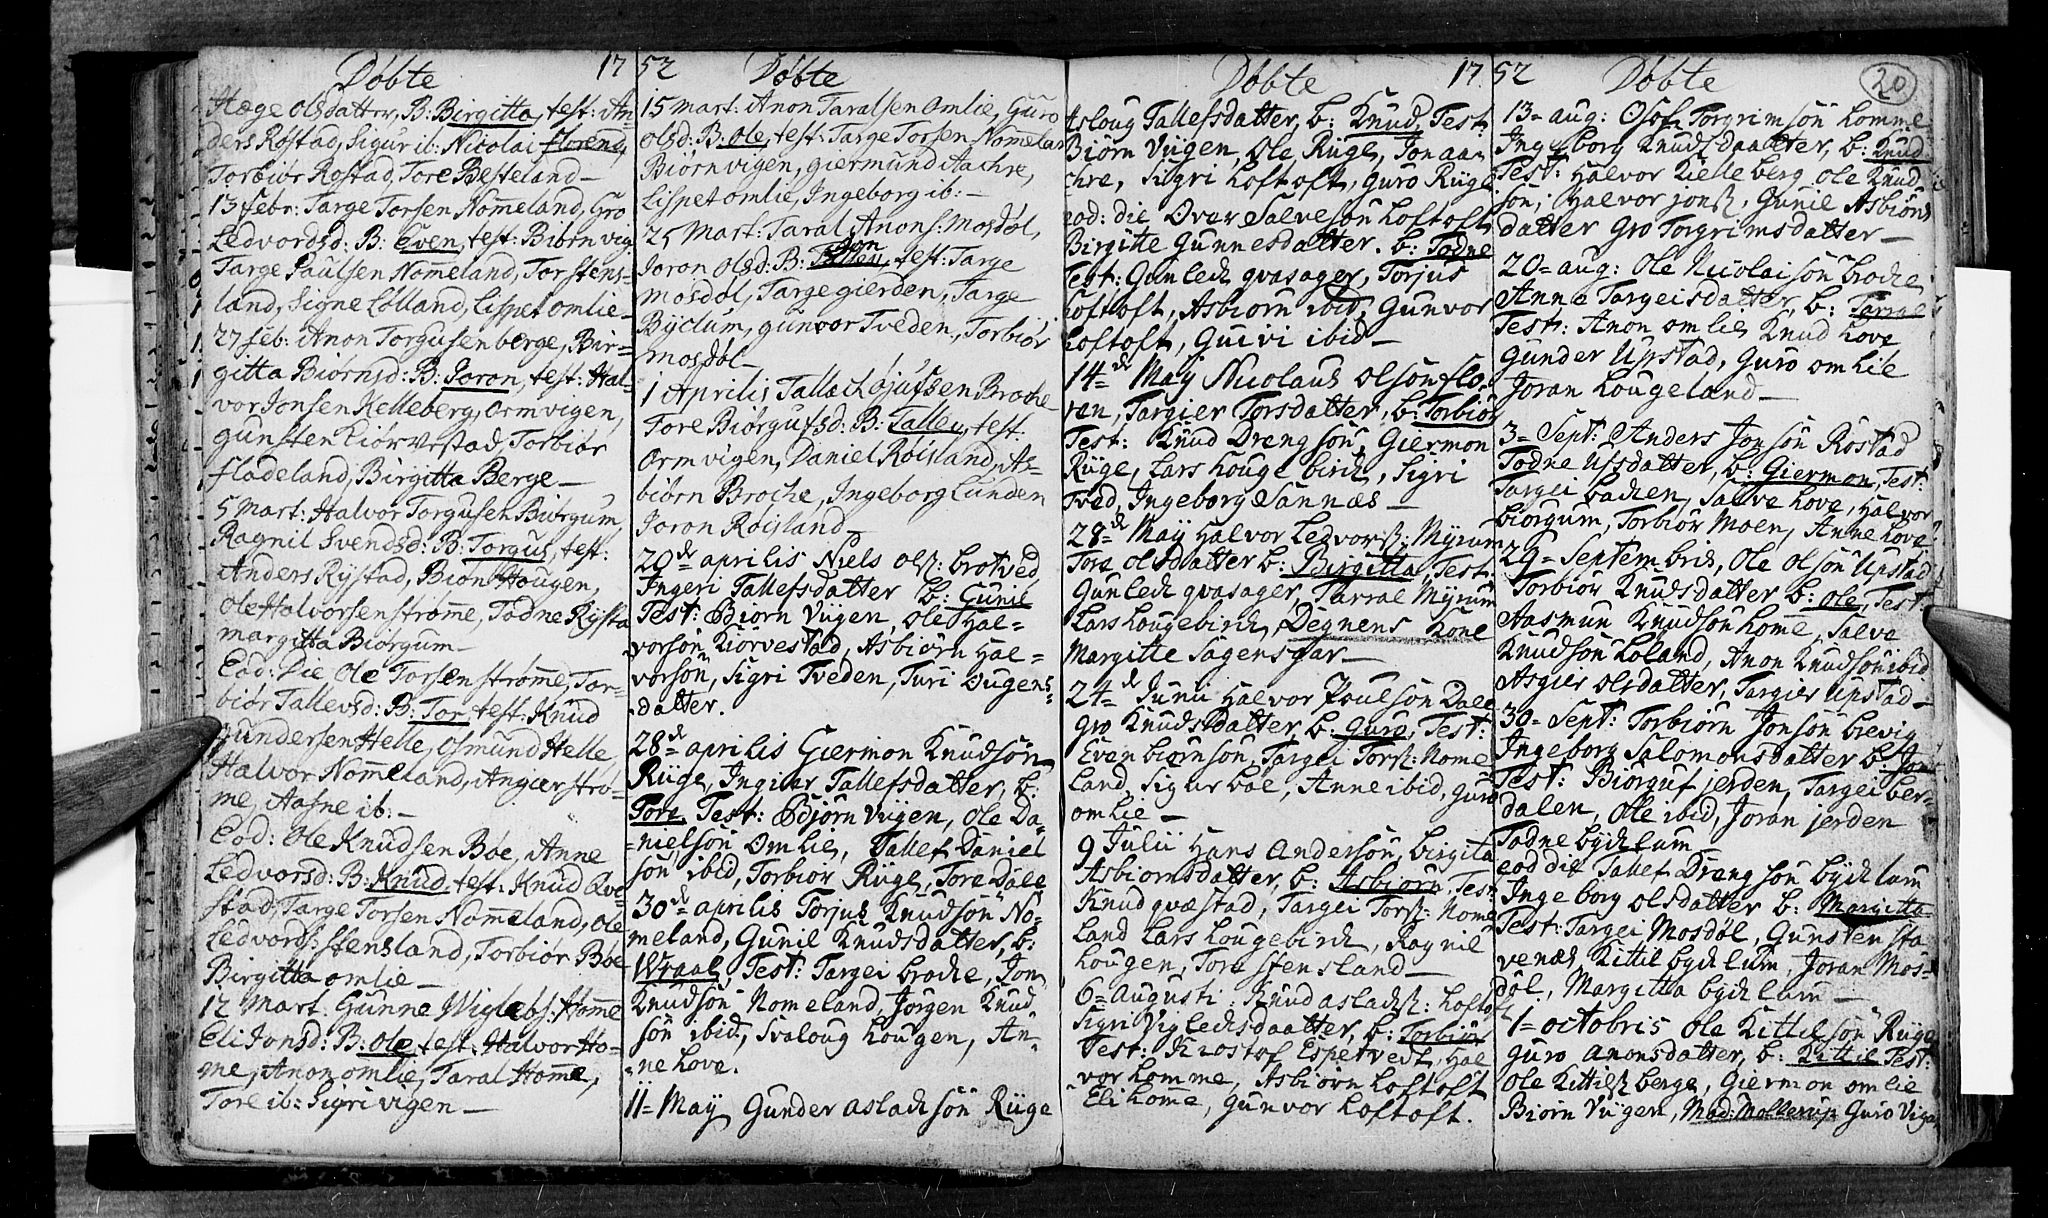 Døbte 1752 Døbte
Hæge Olsdatter, B: Birgitta, test: An-
ders Rostad, Sigur ib: Nicolai Florens,
Torbiør Rostad, Tore Besteland—
13 febr: Targe Torsen Nomeland, Gro
Ledvordsd: B: Even, test: Biørn vig:
Targe Paulsen Nomeland, Tor stens-
land, Signe Lølland, Lispet omlie—
27 feb: Anon Torgusen berge, Bir-
gitta Biørnsd: B: Joron, test: Hal-
vor Jonsen Kelleberg, Ormvigen,
gunsten Kiørvestad, Torbiør
fladeland, Birgitta Berge—
5 Mart: Halvor Torgusen Biørgum,
Ragnil Svendsd: B: Torgus, test:
Anders Rystad, Biøn Hougen,
Ole Halvorsen strømme, Todne Rysta
margitta Biørgum—
Eod: Die Ole Torsen strømme, Tor-
biør Tallevsd: B: Tor test: Knud
gundersen Helle, Osmund Helle,
Halvor Nomeland, Angier strø-
me, Aasne ib:—
Eod: Ole Knudsen Bøe, Anne
Ledvorsd: B: Knud, test: Knud Qve-
stad, Targe Torsen Nomeland, Ole
Ledvords: stensland, Torbiør Bøe
Birgitta omlie—
12 Mart: Gunne Wiglebs: Homme
Eli Jonsd: B: Ole test: Halvor Ho-
me, Anon omlie, Taral Home,
Tore ib: Sigri vigen—
15 mart: Anon Taralsen Omlie, Guro
olsd: B: Ole, test: Targe Torsen Nomelan
Biørn vigen, giermund Aachre,
Lispet omlie, Ingeborg ib:—
25 Mart: Taral Anons: Mosdøl,
Joron Olsd: B: Anon, test: Targe
Mosdøl, Targe gierden, Targe
Byclum, gunvor Tveden, Torbiør
Mosdøl—
1 Aprilis Tallach Djufsen Broche
Tore Biørgufsd: B: Tallev, test:
Orm vigen, Daniel Røisland, As-
biørn Broche, Ingeborg Lunden
Joron Røisland—
20de aprilis Niels ols: brotved
Ingeri Tallefsdatter b: Gunil
Test: Biørn Viigen, Ole Hal-
vorsøn Kiørvestad, Asbiørn Hal-
vorsøn, Sigri Tveden, Turi Ougens-
datter.
28de aprilis Giermon Knudsøn
Riige, Ingier Tallefsdatter, b:
Tore, Test: Biørn Viigen, Ole Da-
nielsøn Omlie, Tallef Daniel
søn ibid, Torbiør Riige, Tore Dale
30de aprilis Torjus Knudsøn No-
meland, Gunil Knudsdatter, b:
Wraal, Test: Targei broche, Jon
Knudsøn Nomeland, Jørgen Knud
søn ibid:, Svaloug Hougen, An-
ne Hove.
11= May Gunder aslachsøn Riige
Døbte 1752 Døbte 20
Asloug Tallefsdatter, b: Knud, Test:
Biørn Viigen, Ole Riige, Jon aa
chre, Sigri Loftoft, Guro Riige
eod: die Over Salvesøn Loftoft
Birgitte Gunnesdatter. b: Todne
Test: Gunlech qvasager, Torjus
Loftoft, Asbiørn ibid, Gunvor
Loftoft, Guivi ibid—
14de May Nicolaus Olsøn flo-
ren, Targier Torsdatter, b: Torbiør
Test: Knud Drengsøn, Giermon
Riige, Lars Hougebirch, Sigri
Tved, Ingeborg Sannæs—
28de May Halvor Ledvors: Myrum
Tore Olsdatter b: Birgitta, Test:
Gunlech qvasager, Tarral Myrum
Lars Hougebirch, Degnens Kone
Margitte Sagensgar—
24d Junii Halvor Poulsøn Dale
gro Knudsdatter, b: Guro, Test:
Even biørnsøn, Targei Tors: Nome
land, Sigur bøe, Anne ibid, guro
omlie—
9 Julii Hans Andersøn, birgita
Asbiørnsdatter, b: Asbiørn, Test:
Knud qvæstad, Targei Tors: Nome
land Lars Hougebirch, Ragnil
Hougen, Tore Stensland—
6= Augusti: Knud aslachs: Loftoft
Sigri Viglechsdaatter, b: Torbiør
Test: Christof Espetvedt, Hal
vor homme, Asbiørn Loftoft
Eli home, Gunvor Loftoft.
13= aug: Osof Torgrimsøn homme
Ingeborg Knudsdaatter, b: Knud
Test: Halvor Kielleberg Ole Knud
søn, Halvor jons:, Gunil Asbiøns
datter Gro Torgrimsdatter—
20= aug: Ole Nicolaisøn broche
Anne Targeisdatter, b: Tarral
Test: Anon omlie, Knud Hove
Gunder Upstad, Guro omlie
Joran Hougeland—
3= Sept: Anders Jonsøn Rostad
Todne Ufsdatter, b: Giermon, Test:
Targei bachen, Salve Hove, Halvor
biorgum, Torbiør Moen, Anne Hove
29= Septembris, Ole Olsøn Upstad
Torbiør Knudsdatter b: Ole, Test:
Aasmun Knudsøn home, Salve
Knudsøn Loland, Anon Knudsøn ibid
Asgier Olsdatter, Targier Upstad—
30= Sept: Torbiørn Jonsøn brevig
Ingeborg Salomonsdatter b: Jon
Test: Biørguf jerden, Targei ber-
dalen, Ole ibid, Joran jerden
Todne bychlum
eod die Tallef Drengsøn bychlum
Ingeborg Olsdatter b: Margitta
Test: Targei Mosdøl, Gunsten sta
venæs, Kittil bychlum, Joran Mos-
døl, Margitta bychlum—
1= octobris Ole Kittilsøn Riige
guro anonsdatter, b: Kittil Test:
Ole Kittils: berge, Giermon omlie
Biørn Viigen, Mad: Mollerup Guro Viga